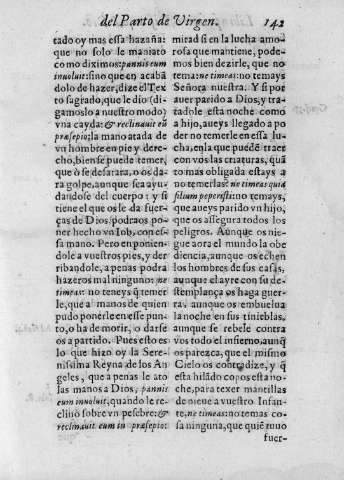 del Parto de Virgen. 142
tado oy mas essa hazaña:
que no solo le maniato
como diximos: pannis eum
inuoluit: sino que en acabā
dolo de hazer, dize el Tex
to sagrado, que le dio (di
gamoslo a nuestro modo)
vna cayda: & reclinauit eū
præsepio: la mano atada de
vn hombre en pie y dere-
cho, bien se puede temer,
que ò se desatara, o os da-
ra golpe, aunque sea ayu-
dandose del cuerpo: y si
tiene el que os le da fuer-
ças de Dios, podraos po-
ner hecho vn Iob, con es-
sa mano. Pero en ponien-
dole a vuestros pies, y der
ribandole, a penas podra
hazeros mal ninguno: ne
timeas: no teneys q̃ temer
le, que a manos de quien
pudo ponerle en esse pun-
to, o ha de morir, o darse
os a partido. Pues esto es
lo que hizo oy la Sere-
nissima Reyna de los An
geles, que a penas le ato
las manos a Dios, pannis
eum inuoluit, quando le re-
clinò sobre vn pesebre: &
reclinauit eum in præsepio:
mirad si en la lucha amo-
rosa que mantiene, pode-
mos bien dezirle, que no
tema: ne timeas: no temays
Señora nuestra. Y si por
auer parido a Dios, y tra-
tadole esta noche como
a hijo, aueys llegado a po
der no temerle en essa lu-
cha, en la que puedē traer
con vos las criaturas, quā
to mas obligada estays a
no temerlas: ne timeas quia
filium peperisti: no temays,
que aueys parido vn hijo,
que os assegura todos los
peligros. Aunque os nie-
gue aora el mundo la obe
diencia, aunque os echen
los hombres de sus casas,
aunque el ayre con su de-
stemplança os haga guer-
ra, aunque os embuelua
la noche en sus tinieblas,
aunque se rebele contra
vos todo el infierno, aunq̃
os parezca, que el mismo
Cielo os contradize, y q̃
esta hilādo copos esta no-
che, para texer mantillas
de nieue a vuestro Infan-
te, ne timeas: no temas co-
sa ninguna, que quiē tuuo
fuer-